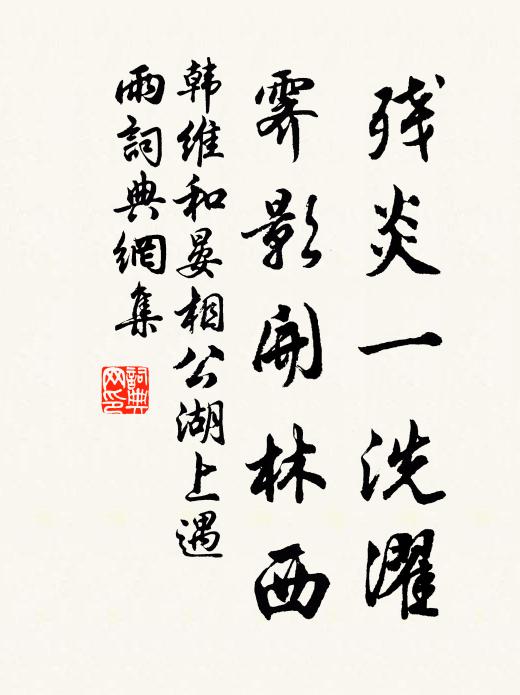 残炎一洗濯
霁影開林西
韩维和晏相公湖上遇
雨詞典網集
詞典
网印